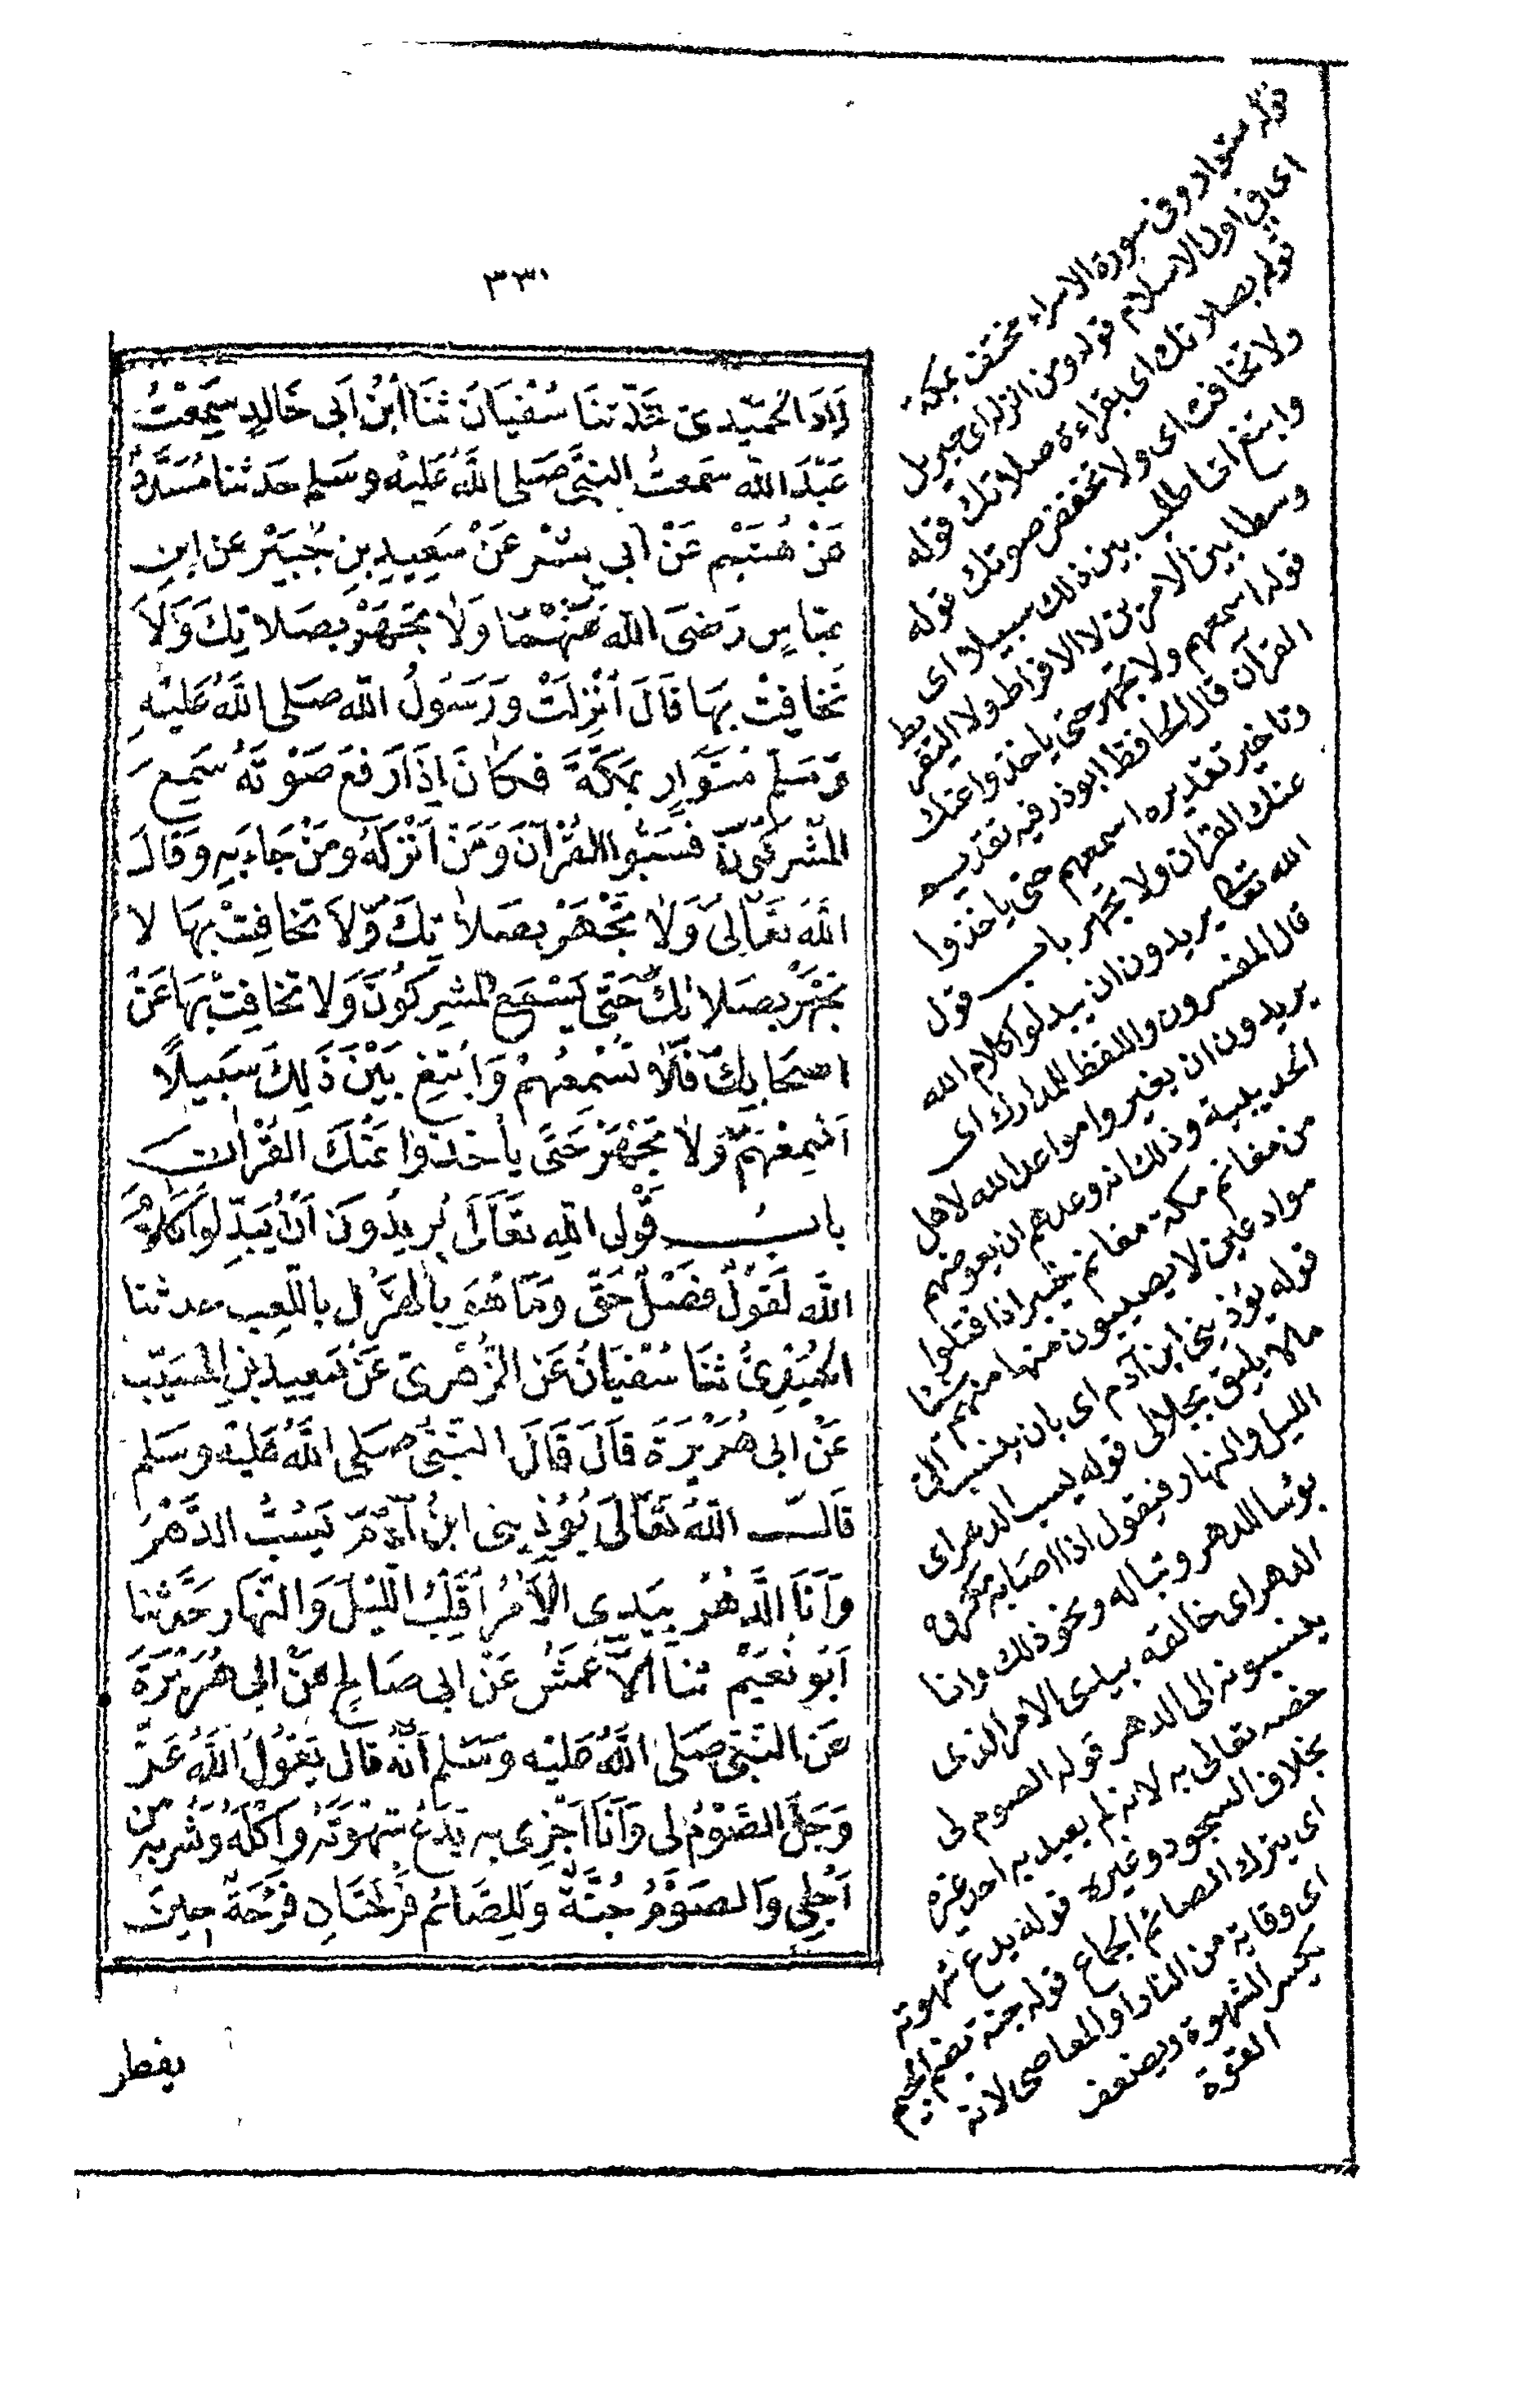 ٣٣١
زَادَ الحُمَيْدِىّ حَدَّثنَا سُفْيَانَ ثنَا ابْنُ اَبى خَالِدٍ سَمِعْتُ
عَبْدَ الله سَمِعتُ النبىَّ صَلى اللهُ عَلَيْه وسَلم حَدثنا مُسَدَّدٌ
عَنْ هُشَيْمٍ عَنْ اَبي بِشْرٍ عَنْ سَعِيدِ بنِ جُبَيْر عن ابن
عبَّاسٍ رَضىَ الله عَنْهُمَا وَلاَ تجْهَرْ بصَلاتِكَ وَلاَ
تُخَافِتْ بِهَا قَالَ اُنْزِلَتْ وَرَسُولُ الله صَلى اللهُ عَلَيْهِ
وَسَلم مُتَوَارٍ بمَكَّةَ فكانَ اِذَا رَفعَ صَوْتَهُ سَمِعَ
المُشْركُونَ فَسَبُّوا القُرْآنَ وَمَنْ اَنْزَلَهُ وَمَنْ جَاءَ بِهِ وَقَالَ
اللهُ تَعَالىَ وَلاَ تَجْهَرْ بصَلاَتِكَ وَلاَ تخَافِتْ بِهَا لا
تجْهَرْ بصَلاتِكَ حَتَّى يَسْمَعَ المشْرِكُونَ وَلا تخَافِتْ بهَا عَنْ
اَصْحَابِكَ فَلاَ تُسْمِعُهُمْ وَابْتَغِ بَيْنَ ذَلِكَ سَبِيلاً
اَسْمِعْهُمْ وَلاَ تَجْهَرْ حَتَّى ياْخُذُوا عَنْكَ القُرْآنَ
بابُ قَوْلِ اللهِ تعَالَى يُرِيدُونَ اَنْ يُبَدِّلُوا كَلاَمَ
الله لَقَوْلٌ فَصْلٌ حَقٌّ وَمَا هُوَ بالْهَزْلِ باللَّعِبِ حدثنا
الحُمَيْدِىُّ ثنَا سُفْيَانُ عَن الزُّهْرىّ عَنْ سَعِيدِ بْنِ المُسَيّبِ
عَنْ ابى هُرَيْرَةَ قالَ قَالَ النَّبىُّ صَلى اللهُ عَلَيْه وسَلم
قَالَ اللهُ تَعَالىَ يُؤْذِينى ابنُ آدَمَ يَسُبُّ الدَّهْرَ
وَاَنَا الدَّهْرُ بِيَدِى الْاَمْرُ اُقَلِّبُ اللَّيْلَ وَالنَّهَارَ حَدَّثنا
اَبُو نُعَيْمٍ ثنا الْاَعْمَشُ عَنْ ابى صَالِحٍ عَنْ ابى هُرَيْرَةَ
عَن النبىّ صَلى اللهُ عَلَيْه وَسَلم اَنَّهُ قال يَقُولُ اللهُ عَزَّ
وَجَلَّ الصَّوْمُ لى وَاَنَا اَجْزِى بِهِ يَدَعُ شَهْوَتَهُ وَاَكْلَهُ وَشُرْبَهُ مِنْ
اَجْلِى وَالصَوْمُ جُنَّةٌ وَلِلصَّائم فَرْحَتَانِ فَرْحَةٌ حِينَ
يفطر
قوله متوار وفى سورة الاسراء مختف بمكة
اى فى اول الاسلام قوله ومن انزله اى جبريل
قوله بصلاتك اى بقراءة صلاتك قوله
ولا تخافت اى ولا تخفض صوتك قوله
وابتغ اى اطلب بين ذلك سبيلا اى
وسطا بين الامرين لا الافراط ولا التفريط
قوله اسمعهم ولا تجهر حتى ياخذوا عنك
القرآن قال الحافظ ابوذر فيه تقديم
وتاخير تقديره اسمعهم حتى ياخذوا
عنك القرآن ولا تجهر باب قول
الله تعالى يريدون ان يبدلوا كلام الله
قال المفسرون واللفظ للمدارك اى
يريدون ان يغيروا مواعد الله لاهل
الحديبية وذلك انه وعدهم ان يعوضهم
من مغانم مكة مغانم خيبر اذا قفلوا
موادعين لا يصيبون منها منهم شيئا
قوله يؤذينى ابن آدم اى بان ينسب الىّ
مالا يليق بجلالى قوله يسب الدهر اى
الليل والنهار فيقول اذا اصابه مكروه
بؤسا للدهر وتبا له ونحو ذلك وانا
الدهر اى خالقه بيدى الامر الذى
ينسبونه الى الدهر قوله الصوم لى
خصه تعالى به لانه لم يعبد به احد غيره
بخلاف السجود وغيره قوله يدع شهوته
اى يترك الصائم الجماع قوله جنة بضم الجيم
اى وقاية من النار او المعاصى لانه
يكسر الشهوة ويضعف
القوة